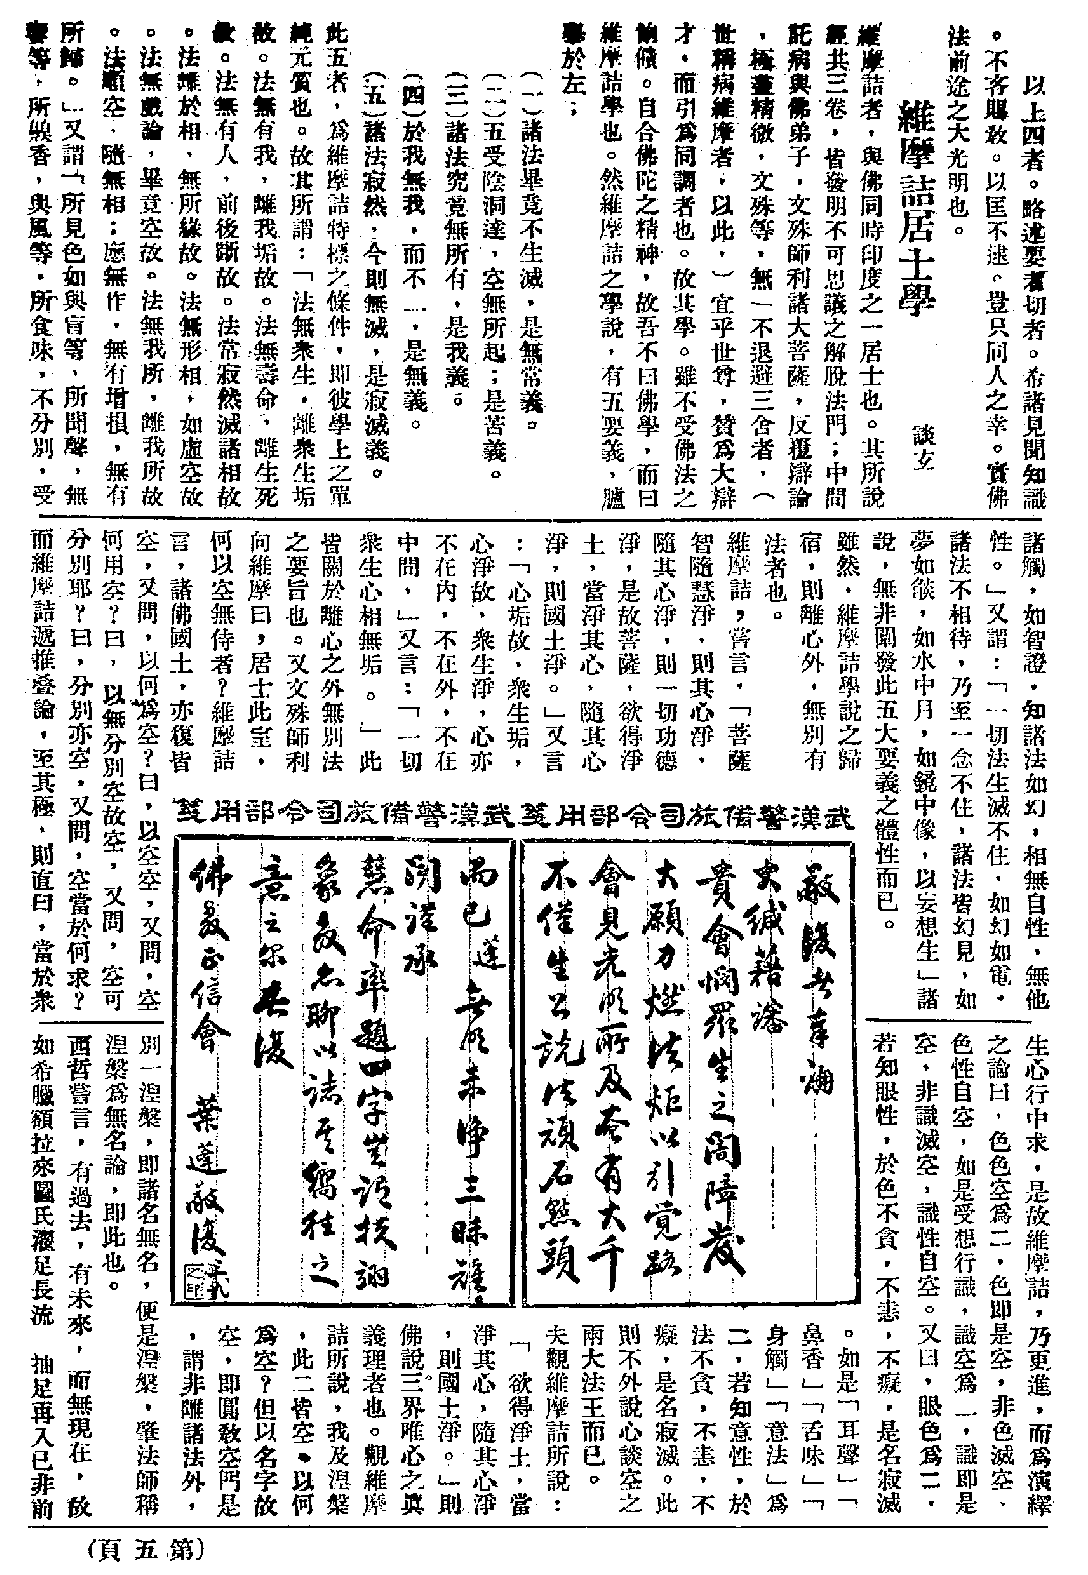 以上四者。略述要者切者。希諸見聞知識
。不吝賜敎。以匡不逮。豈只同人之幸。實佛
法前途之大光明也。
維摩詰居士學　談玄
維摩詰者，與佛同時印度之一居士也。其所說
經共三卷，皆發明不可思議之解脫法門；中間
託病與佛弟子，文殊師利諸大菩薩，反覆辯論
，極盡精微，文殊等，無一不退避三舍者，（
世稱病維摩者，以此，）宜乎世尊，贊爲大辯
才，而引爲同調者也。故其學。雖不受佛法之
。自合佛陀之精神，故吾不曰佛學，而曰
維摩詰學也。然維摩詰之學說，有五要義，臚
舉於左；
（一）諸法畢竟不生滅，是無常義。
（二）五受陰洞達，空無所起；是苦義。
（三）諸法究竟無所有，是我義。
（四）於我無我，而不二，是無義。
（五）諸法寂然，今則無滅，是寂滅義。
此五者，爲維摩詰特標之條件，即彼學上之單
純元質也。故其所謂：「法無衆生，離衆生垢
故。法無有我，離我垢故。法無壽命，離生死
故。法無有人，前後斷故。法常寂然滅諸相故
。法離於相，無所緣故。法無形相，如虛空故
。法無戲論，畢竟空故。法無我所，離我所故
。法順空，隨無相；應無作，無有增損，無有
所歸。」又謂「所見色如與盲等，所聞聲，與
響等，所嗅香，與風等，所食味，不分別，受
諸觸，如智證，知諸法如幻，相無自性，無他
性。」又謂：「一切法生滅不住，如幻如電，
諸法不相待，乃至一念不住，諸法皆幻見，如
夢如燄，如水中月，如鏡中像，以妄想生」諸
說，無非闡發此五大要義之體性而已。
雖然，維摩詰學說之歸
宿，則離心外，無別有
法者也。
維摩詰，嘗言，「菩薩
智隨慧淨，則其心淨，
隨其心淨，則一切功德
淨，是故菩薩，欲得淨
土，當淨其心，隨其心
淨，則國土淨。」又言
：「心垢故，衆生垢，
心淨故，衆生淨，心亦
不在內，不在外，不在
中間，」又言：「一切
衆生心相無垢。」此
皆關於離心之外無別法
之要旨也。又文殊師利
向維摩曰，居士此室，
何以空無侍者？維摩詰
言，諸佛國土，亦復皆
空，又問，以何爲空？曰，以空空，又問，空
何用空？曰，以無分別空故空，又問，空可
分別耶？曰，分別亦空，又問，空當於何求？
而維摩詰遞推叠論，至其極，則直曰，當於衆
武漢警備旅司令部用箋
敬復者奉誦
大緘藉讅
貴會憫羣生之闇障發
大願力燃法炬以引覺路
會見光明所及奄有大千
不僅生公說法頑石點頭
武漢警備旅司令部用箋
而已蓬無明未淨三昧難
闚謹承
慧命率題四字豈謂扶翊
象教亦聊以誌其嚮往之
意云爾此復
佛教正信會　葉蓬敬復
生心行中求，是故維摩詰，乃更進，而爲演繹
之論曰，色色空爲二，色即是空，非色滅空、
色性自空，如是受想行識，識空爲二，識即是
空，非識滅空，識性自空。又曰，眼色爲二，
若知眼性，於色不貪，不恚，不癡，是名寂滅
。如是「耳聲」「
鼻香」「舌味」「
身觸」「意法」爲
二，若知意性，於
法不貪，不恚，不
癡，是名寂滅。此
則不外說心談空之
兩大法王而已。
夫觀維摩詰所說：
「欲得淨土，當
淨其心，隨其心淨
，則國土淨。」則
佛說三界唯心之眞
義理者也。觀維摩
詰所說，我及湼槃
，此二皆空，以何
爲空？但以名字故
空，即圓教空門是
，謂非離諸法外，
別一湼槃，即諸名無名，便是湼槃，肇法師稱
湼槃爲無名論，即此也。
西哲嘗言，有過去，有未來，而無現在，故
如希臘額拉來圖氏濯足長流　抽足再入已非前
（第五頁）